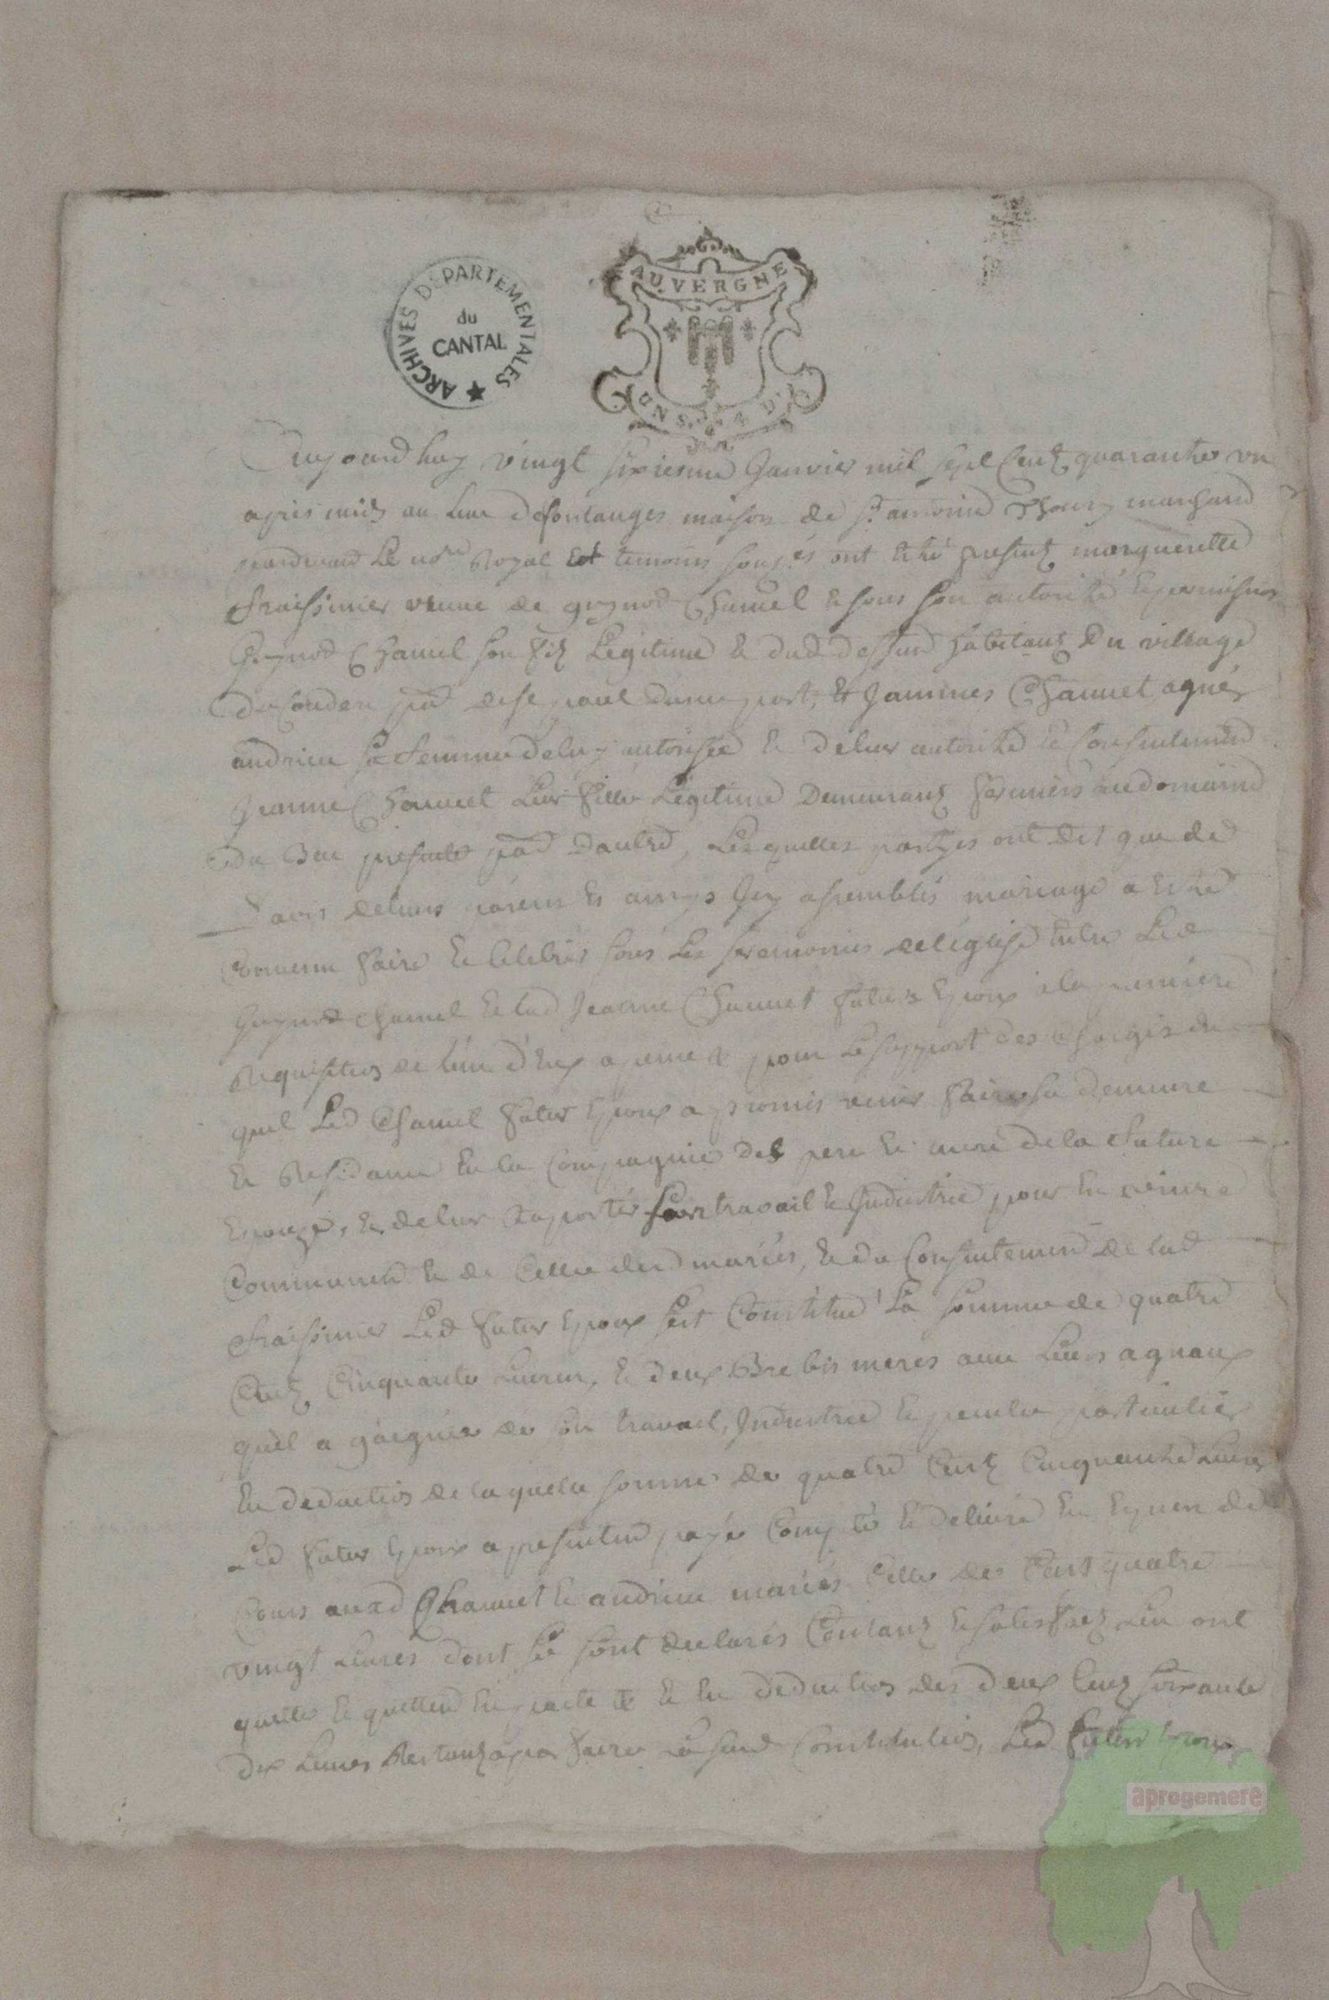 ARCHIVES DÉPARTEMENTALES
du
CANTAL
AUVERGNE
UN S. 4 D.
Aujourdhuy vingt sixiesme Janvier mil sept Cent quarante un
apres midy au lieu de fontanges maison de Sr antoine marchand
pardevant Le nore Royal Et temoins ont Esté presents marguerette
fraissinier veuve de guynot Chamel & sous son autorité & permission
Guynot Chamel son fils Legitime & dud deffunt habitants Du village
part, Et Jammes Chauvet, agnés
andrieu sa femme de luy autorisée & de leur autorité & Consentement
Jeanne Chauvet Leur fille Legitime Demeurants fermiers au domaine
du presente pard Dautre, Lesquelles partyes ont dit que de
L'avis de leurs parens & amys Icy assemblés mariage a Esté
Convenu faire & Celebrer sous Les seremonies de léglise Entre Led
Guynot Chamel & lad Jeanne Chauvet futurs Epoux a la premiere
Requisition de lun d'Eux a peine & pour Le support des Charges du
quel Led Chamel futur Epoux a promis venir faire sa demeure
& Residance En la Compagnie des pere & mere de la future
Epouze, & de leur aporter son travail & Industrie pour En
Communion & de Celle desd mariés, & du Consentement de lad
fraissinier Led futur Epoux sest Constitué La somme de quatre
Cent Cinquante Livres, & deux Brebis meres avec Leurs agneaux
quil a gaignés de son travail, Industrie & peculle particulier
En deduction de laquelle somme de quatre Cent Cinquante Livres
Led futur Epoux a presentement payé Compté & delivré En Especes de
Cours auxd Chauvet & andrieu mariés Celle de Cent quatre
vingt Livres dont se sont declarés Contants & satisfaits Len ont
quitté & quittent & En deduction des deux Cent soixante
dix Livres Restants a par faire La susd Constitution, Led futur Epoux
aprogemere